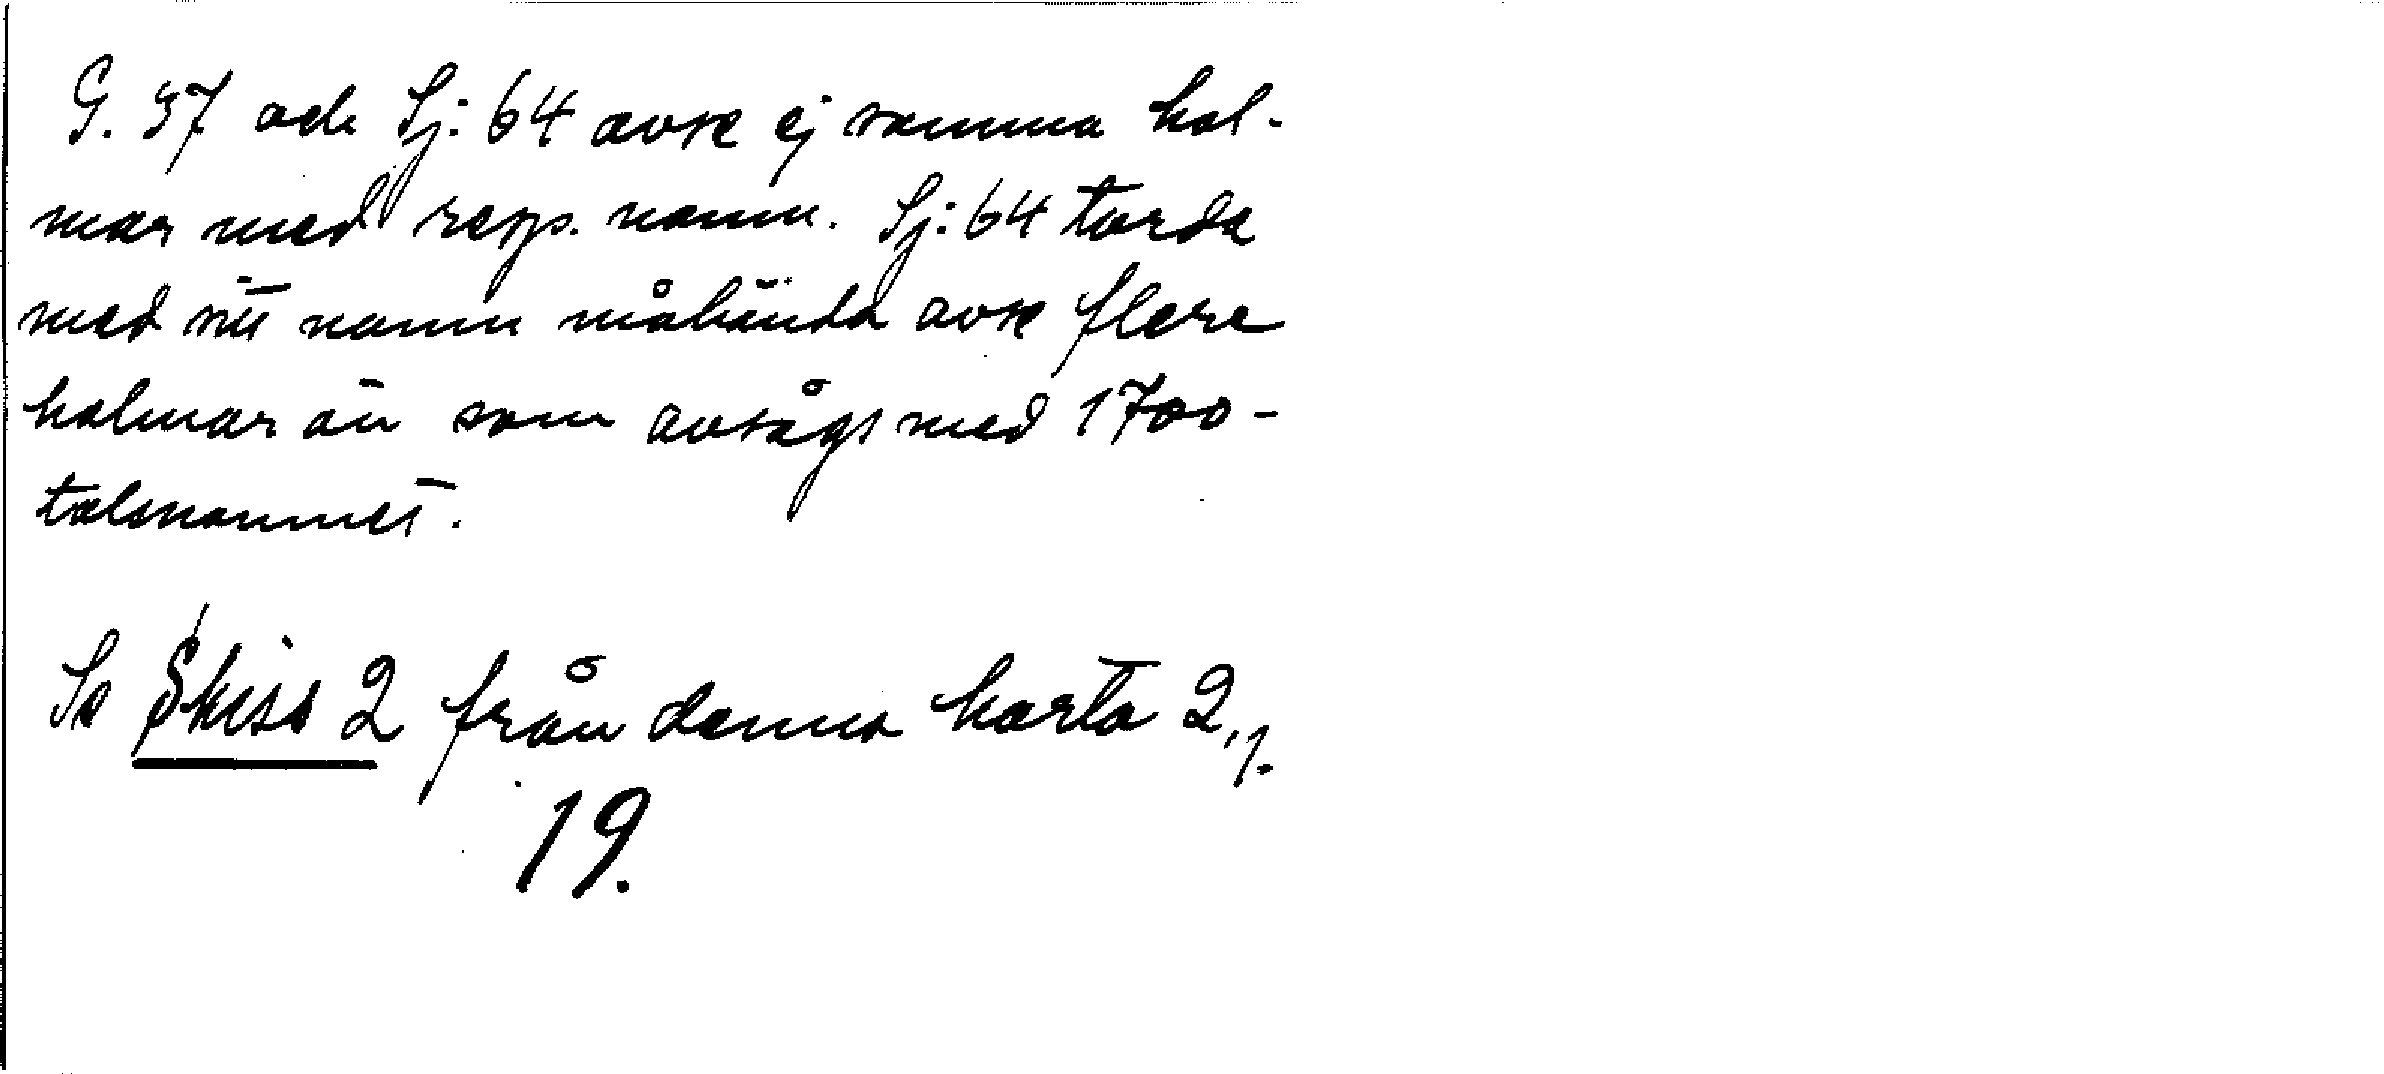 G. 37 och Sj: 64 avse ej samma hol-
mar med resp. namn. Sj: 64 torde
med sitt namn måhända avse flere
holmar än som avsågs med 1700-
talsnamnet.
Se Skiss 2 från denna karta 2,1.
19.